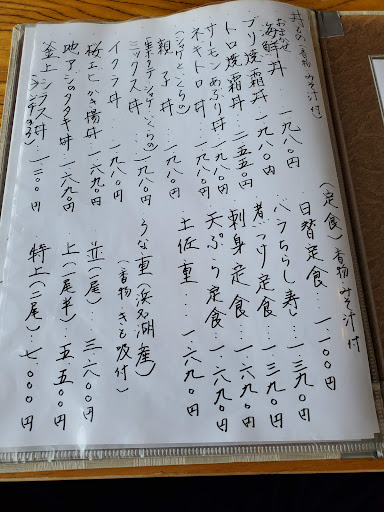 丼もの(香物 みそ汁付)
おまかせ
海鮮丼…一、九八〇円
ブリ焼霜丼…一、九八〇円
トロ焼霜丼…二、五五〇円
サーモンあぶり丼…一、九八〇円
ネギトロ丼…一、九八〇円
親子丼…一、九八〇円
ミックス丼…一、九八〇円
イクラ丼…一、九八〇円
桜エビかき揚丼…一、六九〇円
地アジのタタキ丼…一、六九〇円
釜上シラス丼…一、二〇〇円
(定食)香物 みそ汁付
日替定食…一、一〇〇円
バラちらし寿し…一、三九〇円
煮つけ定食…一、三九〇円
刺身定食…一、六九〇円
天ぷら定食…一、六九〇円
土佐重…一、六九〇円
うな重(浜名湖産)
(香物 きも吸付)
並(一尾)…三、六〇〇円
上(一尾半)…五、五〇〇円
特上(二尾)…七、〇〇〇円